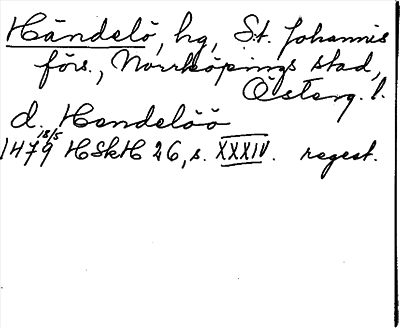 Händelö, hg, S:t Johannis
förs., Norrköpings stad,
Österg. l.
d. Hendelöö
18/5
1479 HSkH 26, s. XXXIV. regest.